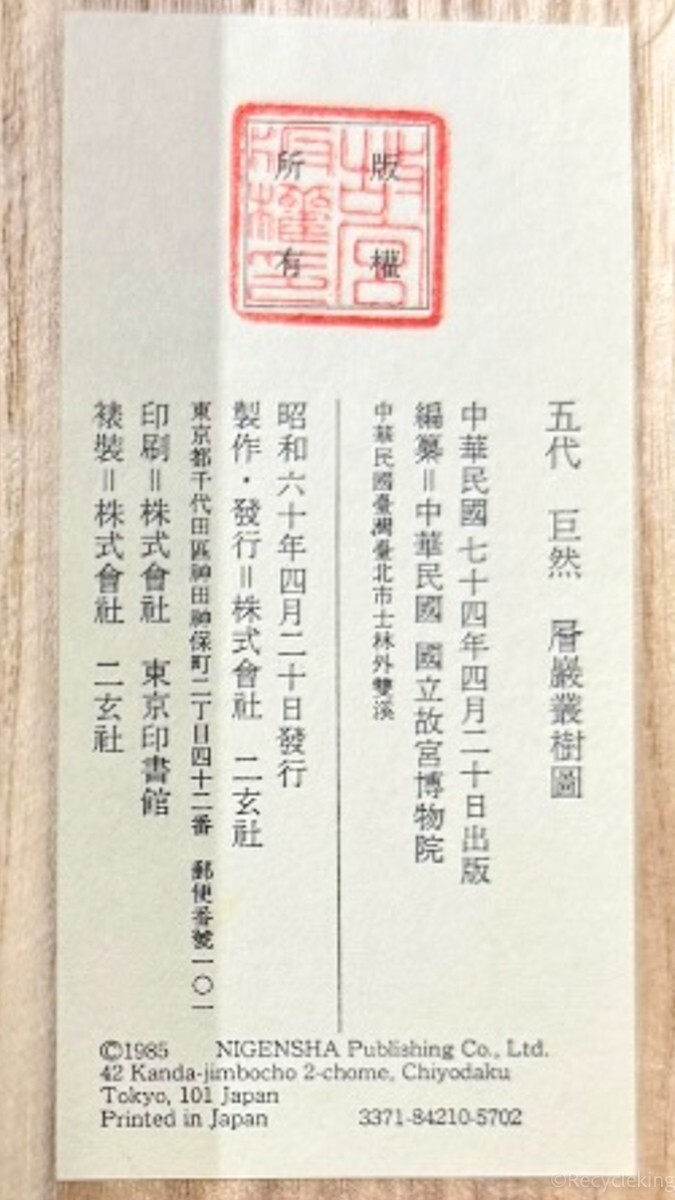 版權
所有
故宮
版權之印
五代 巨然 層巖叢樹圖
中華民國七十四年四月二十日出版
編纂＝中華民國 國立故宮博物院
中華民國臺灣臺北市士林外雙溪
昭和六十年四月二十日發行
製作・發行＝株式會社 二玄社
東京都千代田區神田神保町二丁目四十二番 郵便番號一〇一
印刷＝株式會社 東京印書館
裱裝＝株式會社 二玄社
©1985 NIGENSHA Publishing Co., Ltd.
42 Kanda-jimbocho 2-chome, Chiyodaku
Tokyo, 101 Japan
Printed in Japan 3371-84210-5702
©Recycleking